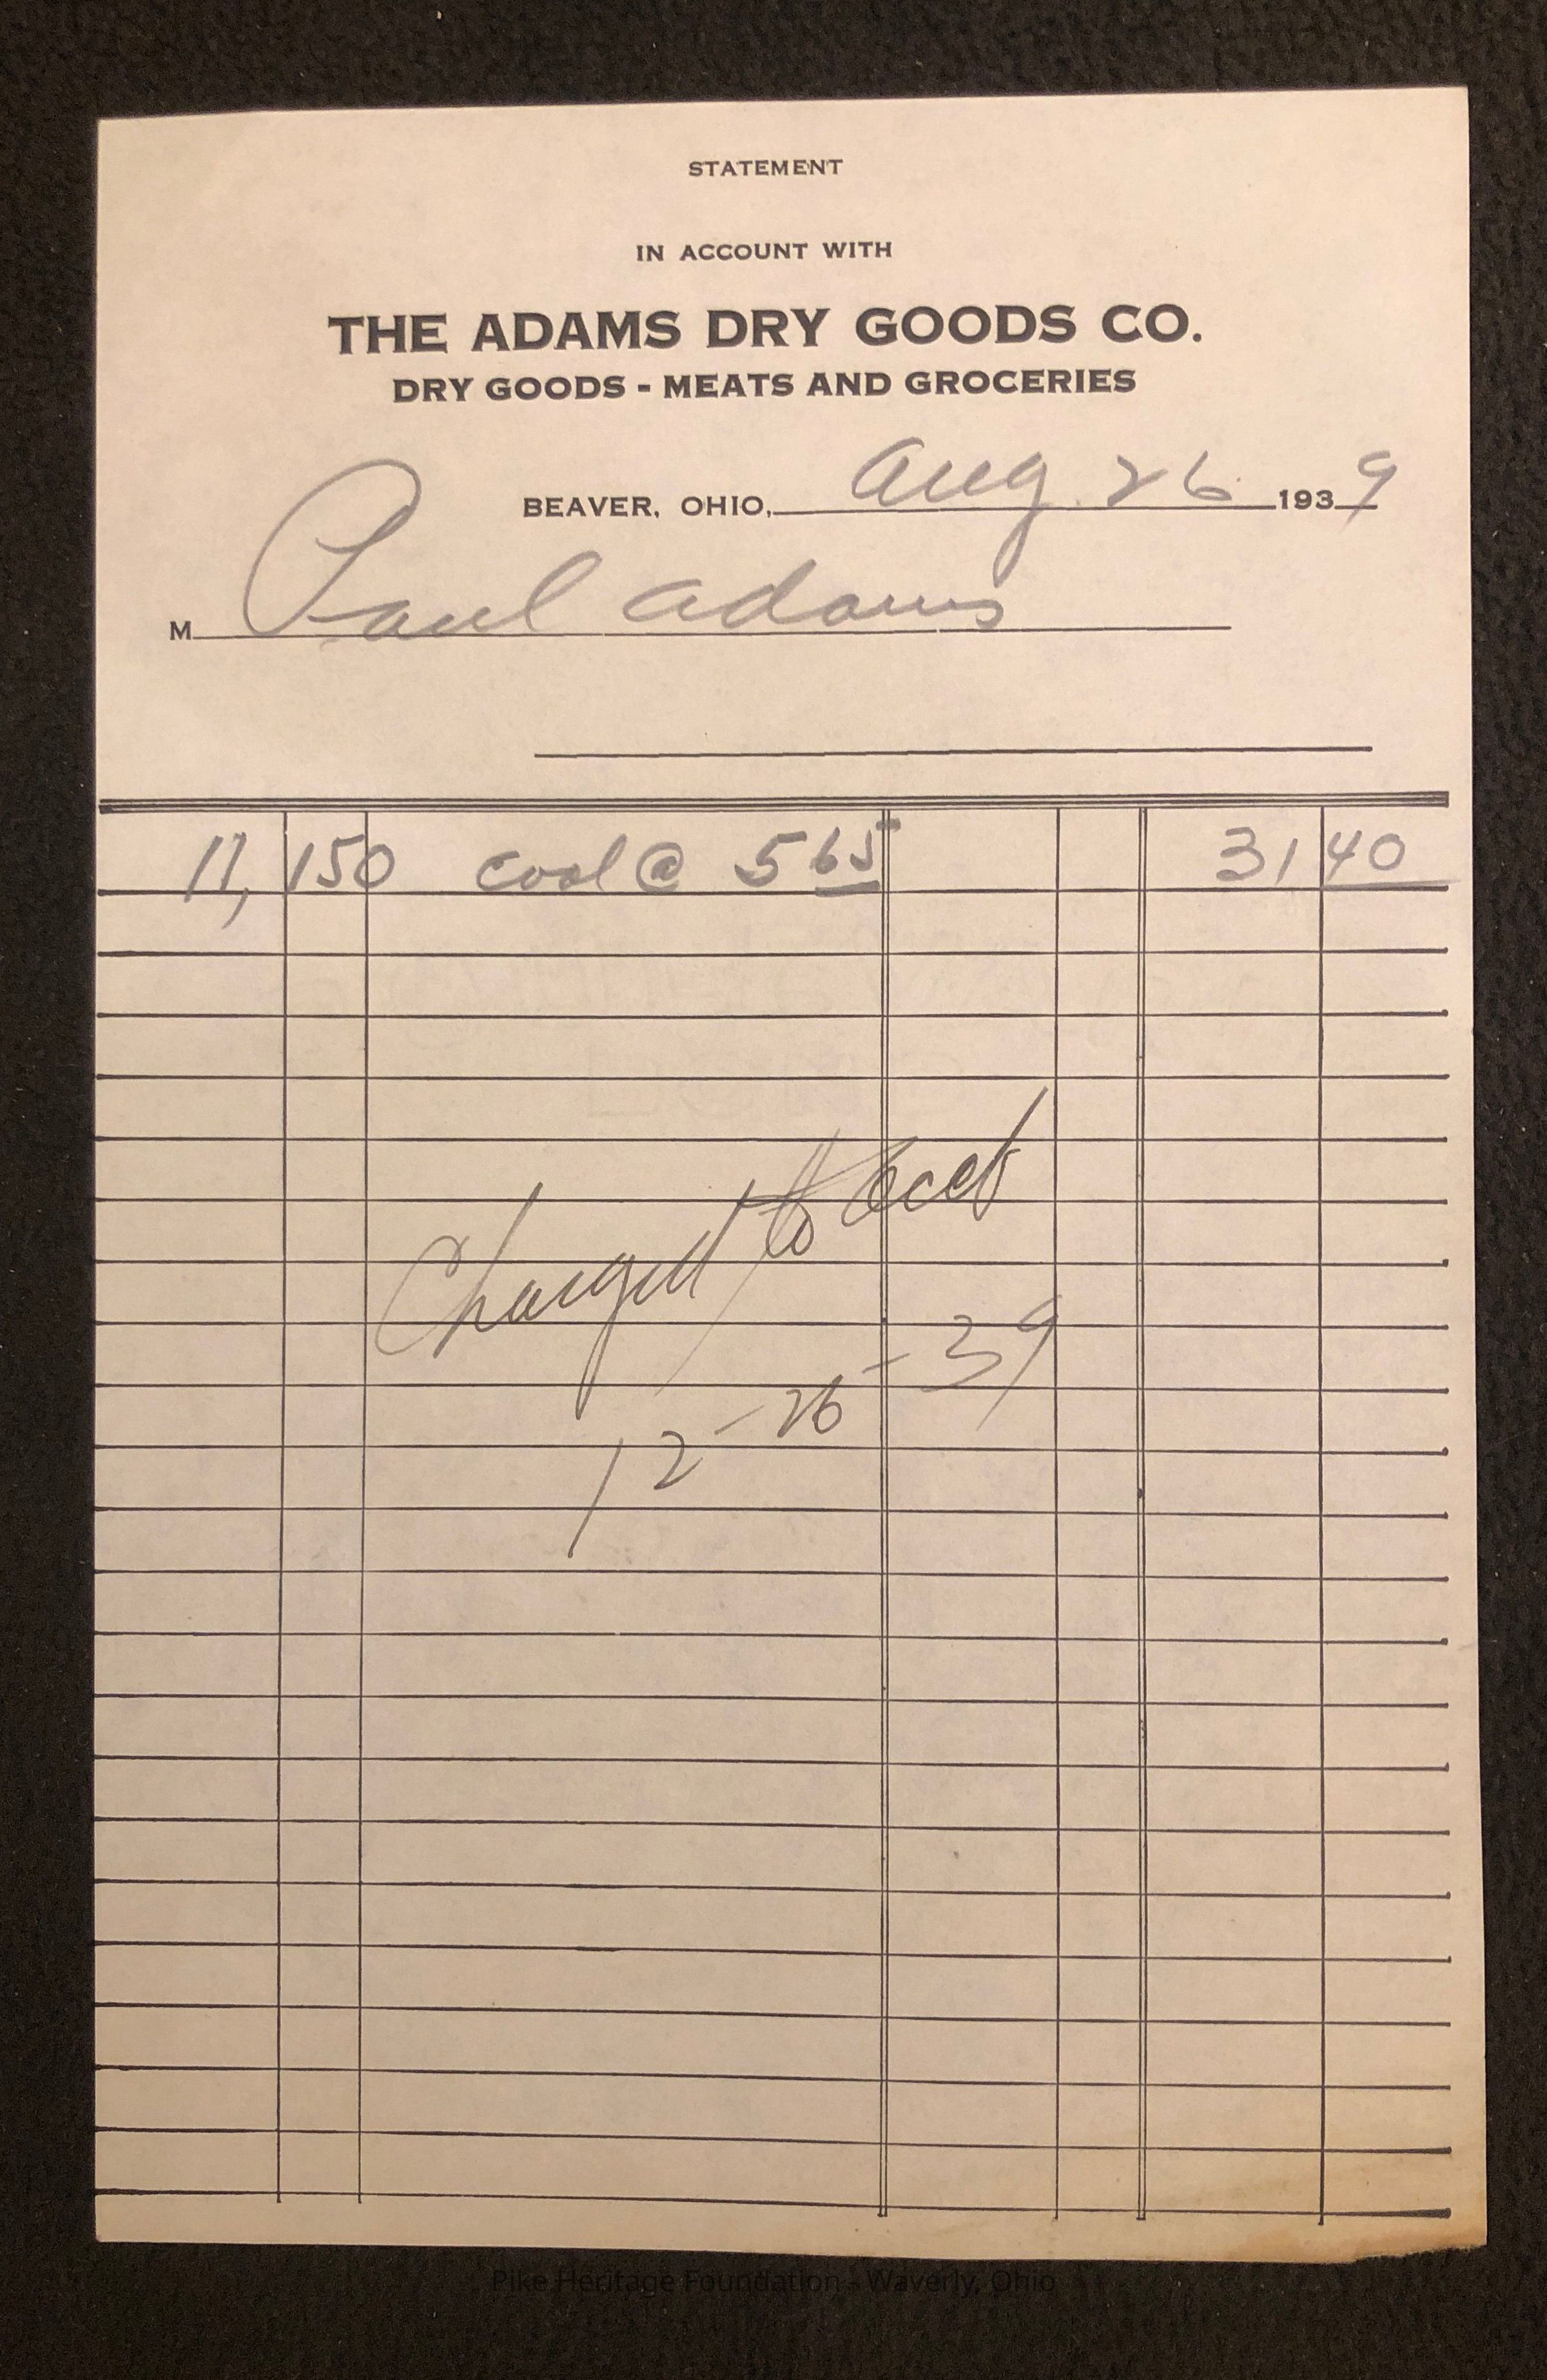 STATEMENT
IN ACCOUNT WITH
THE ADAMS DRY GOODS CO.
DRY GOODS - MEATS AND GROCERIES
BEAVER, OHIO, Aug. 26 1939
M Paul Adams
11,150 coal @ 565 31 40
Charged to acct
12-26-39
Pike Heritage Foundation - Waverly, Ohio